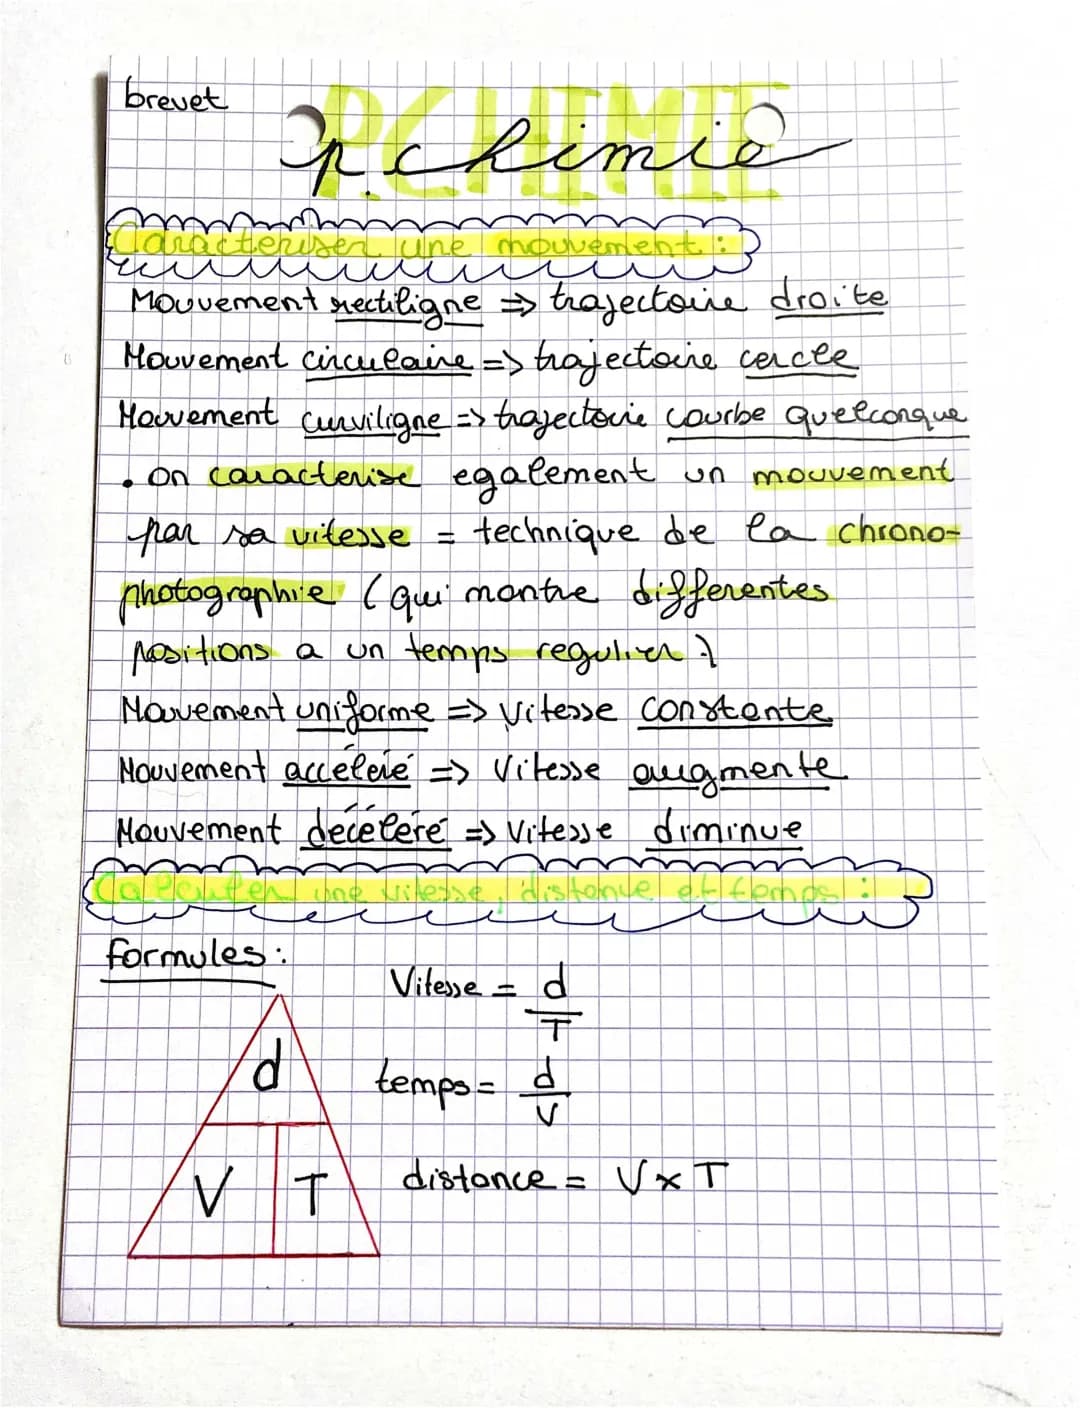 brevet
P.CHIMIE
p.chimie
Caracteriser une mouvement :
Mouvement rectiligne => trajectoire droite
Mouvement circulaire => trajectoire cercle
Mouvement curviligne => trajectoire courbe quelconque
• on caracterise egalement un mouvement
par sa vitesse = technique de la chrono-
photographie (qui montre differentes
positions a un temps regulier)
Mouvement uniforme => vitesse constante
Mouvement accéléré => Vitesse augmente
Mouvement décéléré => Vitesse diminue
Calculer une vitesse, distance et temps :
formules :
Vitesse = d
T
d
temps = d
V
V T
distance = V x T